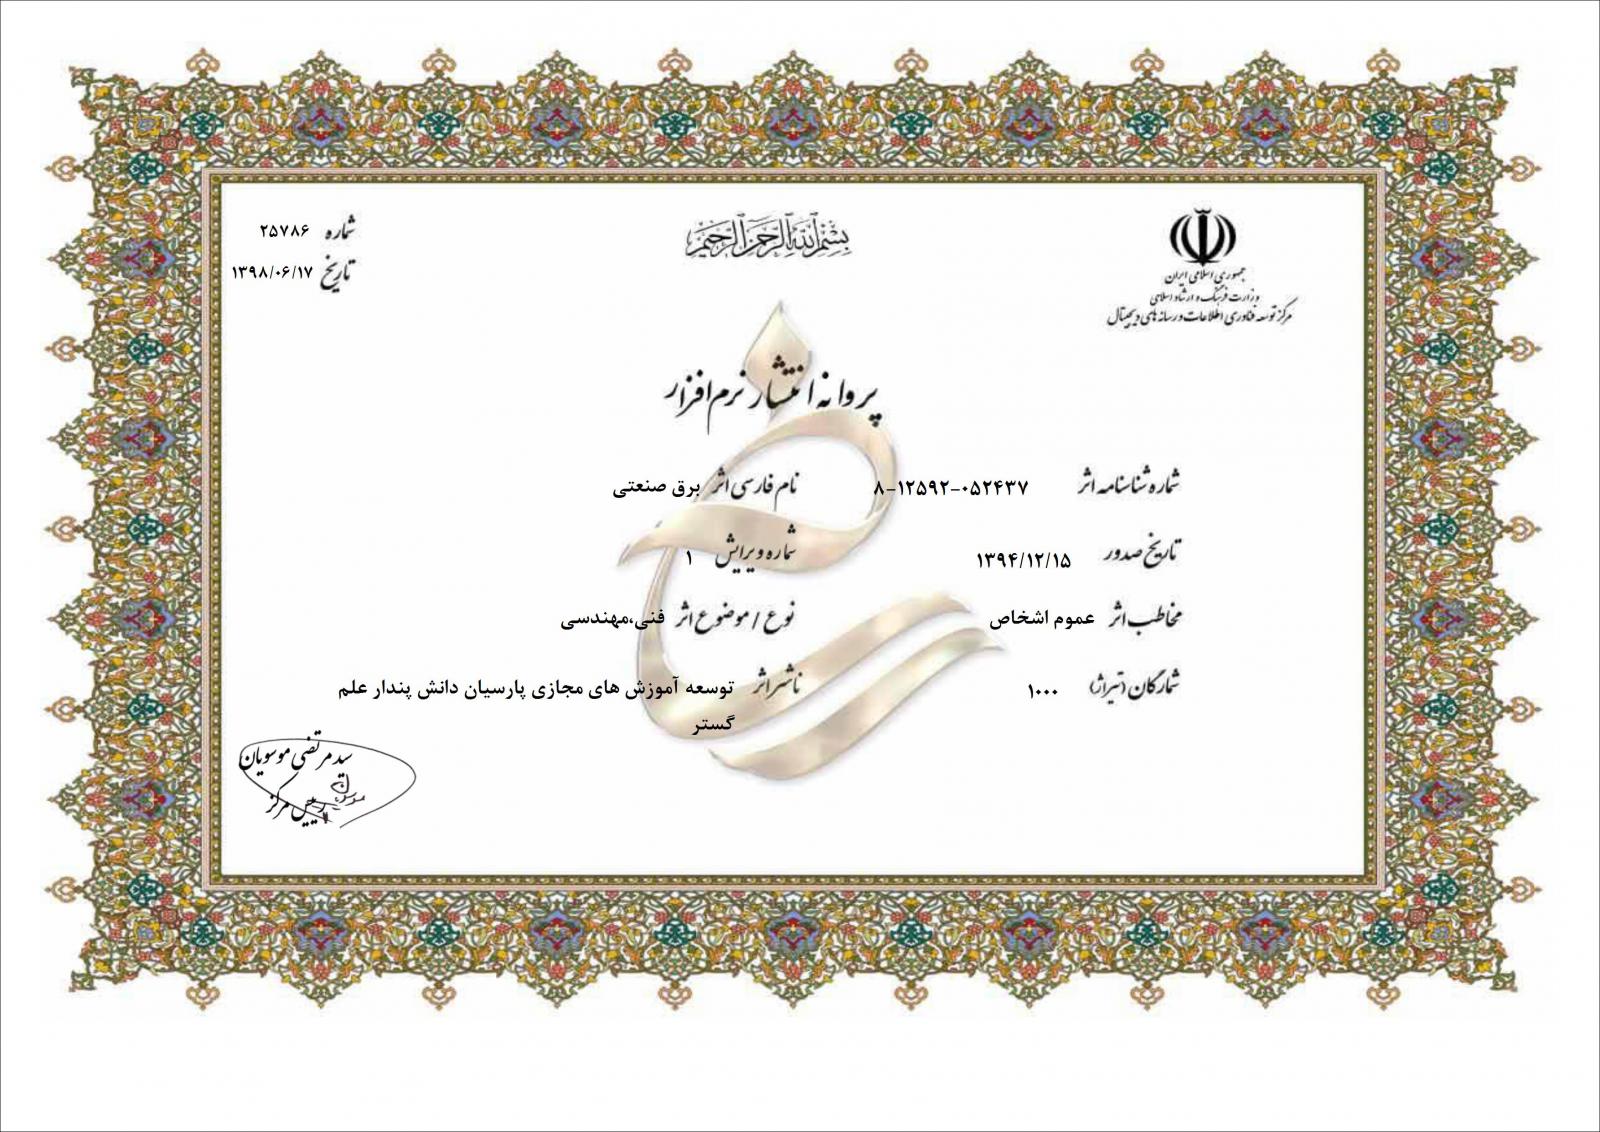 بسم الله الرحمن الرحیم
جمهوری اسلامی ایران
وزارت فرهنگ و ارشاد اسلامی
مرکز توسعه فناوری اطلاعات و رسانه های دیجیتال
شماره ۲۵۷۸۶
تاریخ ۱۳۹۸/۰۶/۱۷
پروانه انتشار نرم افزار
شماره شناسنامه اثر ۸-۱۲۵۹۲-۰۵۲۴۳۷
نام فارسی اثر برق صنعتی
تاریخ صدور ۱۳۹۴/۱۲/۱۵
شماره ویرایش ۱
مخاطب اثر عموم اشخاص
نوع / موضوع اثر فنی،مهندسی
شمارگان (تیراژ) ۱۰۰۰
ناشر اثر توسعه آموزش های مجازی پارسیان دانش پندار علم
گستر
سید مرتضی موسویان
رییس مرکز